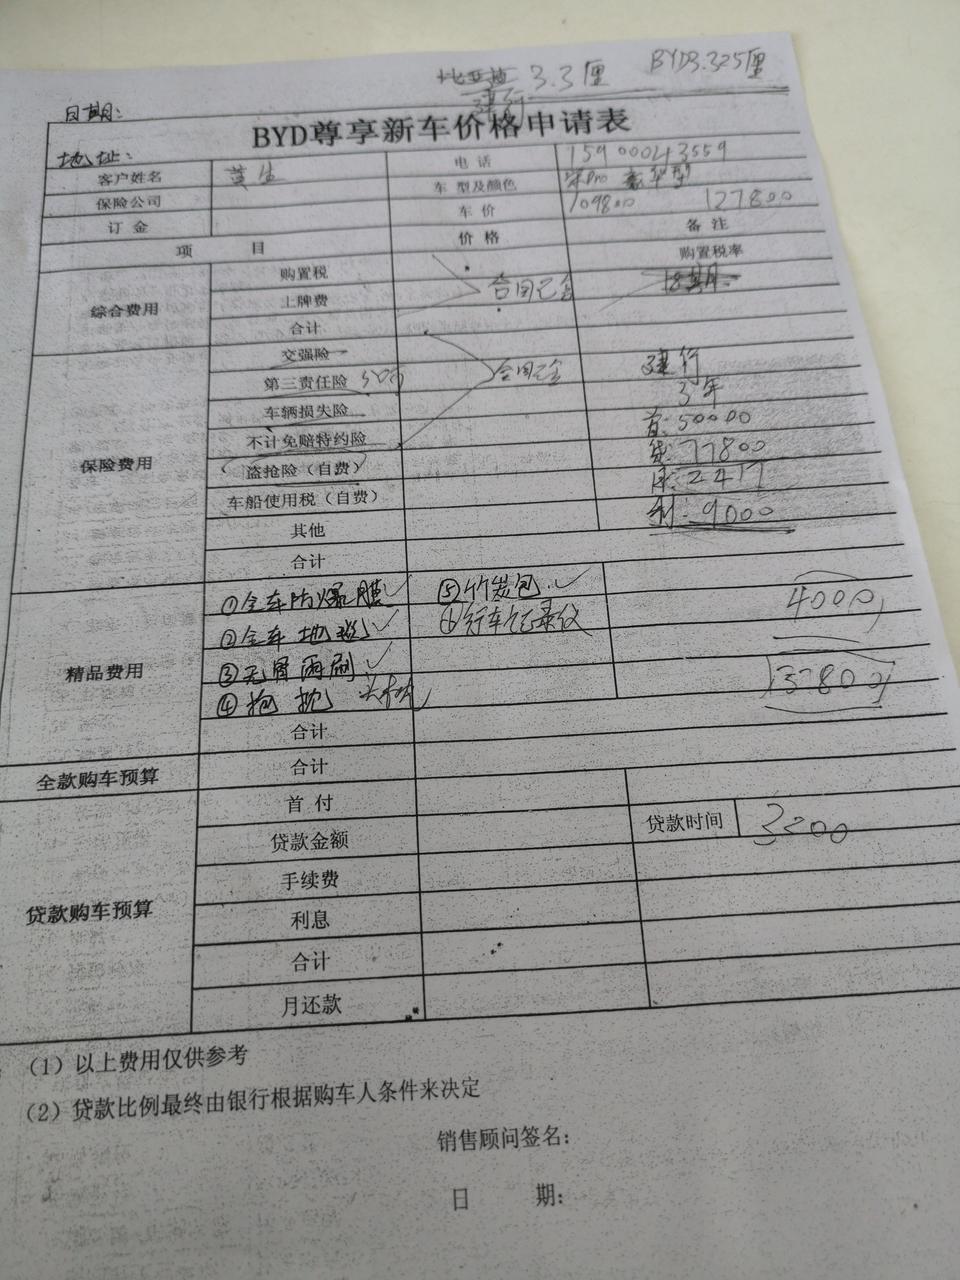 3.3厘 BYD3.325厘
建行
日期:
BYD尊享新车价格申请表
地址:
客户姓名 黄生 电话 15900043559
保险公司 车型及颜色 宋Pro 豪华型
订金 车价 109800 127800
项目 价格 备注
购置税率
综合费用
购置税
上牌费 合同已含
合计
保险费用
交强险
第三责任险 合同已含 建行
车辆损失险 3年
不计免赔特约险 首:50000
盗抢险（自费） 贷:77800
车船使用税（自费） 月:2417
其他 利:9000
合计
精品费用
①全车防爆膜✓ ⑤竹炭包✓ 4000
②全车地毯✓ ⑥行车记录仪
③无骨雨刷✓ 137800
④抱枕 头枕✓
合计
全款购车预算 合计
贷款购车预算
首付
贷款金额 贷款时间 3500
手续费
利息
合计
月还款
（1）以上费用仅供参考
（2）贷款比例最终由银行根据购车人条件来决定
销售顾问签名:
日期: